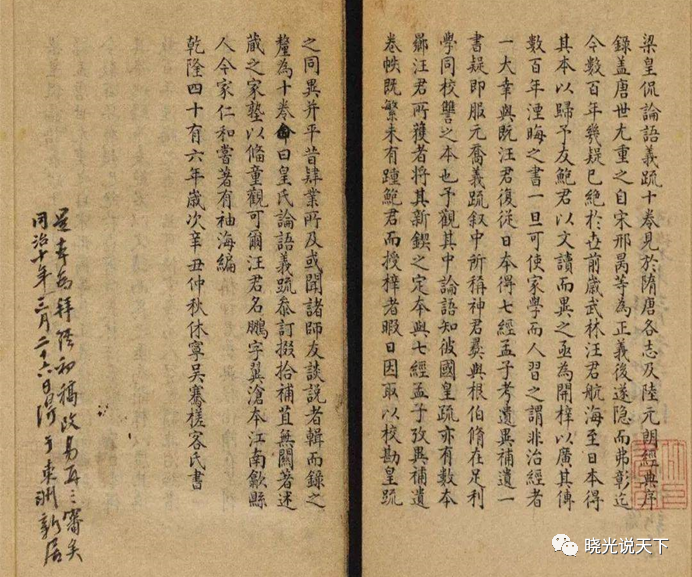 梁皇侃論語義疏十卷見於隋唐各志及陸元朗經典序
錄盖唐世尤重之自宋邢昺等為正義後遂隐而弗彰迄
今數百年幾疑已絕於世前歲武林汪君航海至日本得
其本以歸予友鮑君以文讀而異之亟為開梓以廣其傳
數百年湮晦之書一旦可使家學而人習之謂非治經者
一大幸與既汪君復從日本得七經孟子考遺異補遺一
書疑即服元喬義疏叙中所稱神君彛與根伯脩在足利
學同校讐之本也予觀其中論語知彼國皇疏亦有數本
汪君所獲者將其新鍥之定本與七經孟子攷異補遺
卷帙既繁未有踵鮑君而授梓者暇日因取以校勘皇疏
之同異并平昔肆業所及或聞諸師友談說者輯而錄之
釐為十卷命曰皇氏論語義疏叅訂掇拾補苴無關著述
蔵之家塾以備童觀可爾汪君名鵬字翼滄本江南歙縣
人今家仁和嘗著有袖海編
乾隆四十有六年歲次辛丑仲秋休寧吴騫槎客氏書
是本為拜經初稿改易再三審矣
同治十年三月二十六日得于東洲新居
晓光说天下